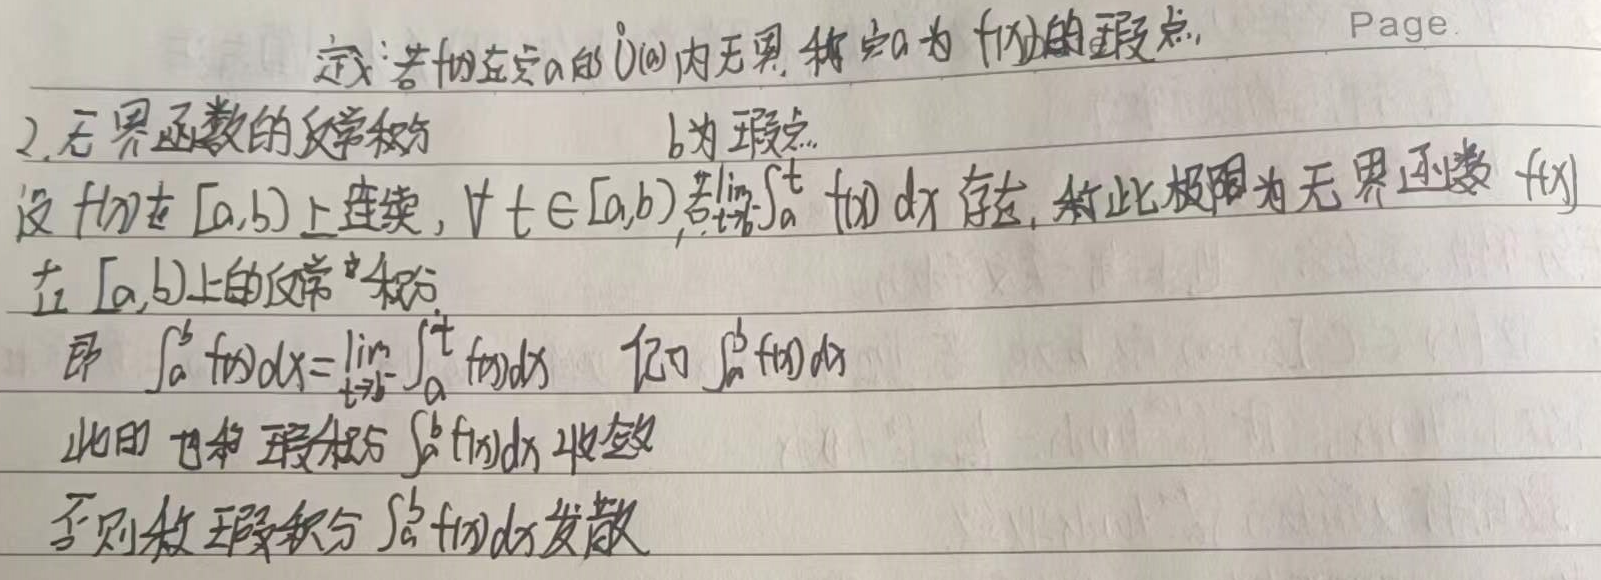 Page.
定义:若f(x)在点a的Ů(a)内无界,称点a为f(x)的瑕点,
2.无界函数的反常积分 b为瑕点.
设f(x)在[a,b)上连续,∀t∈[a,b),若lim_{t→b⁻}∫_a^t f(x)dx存在,称此极限为无界函数f(x)
在[a,b)上的反常积分.
即 ∫_a^b f(x)dx=lim_{t→b⁻}∫_a^t f(x)dx 记为∫_a^b f(x)dx
此时也称瑕积分∫_a^b f(x)dx收敛
否则称瑕积分∫_a^b f(x)dx发散